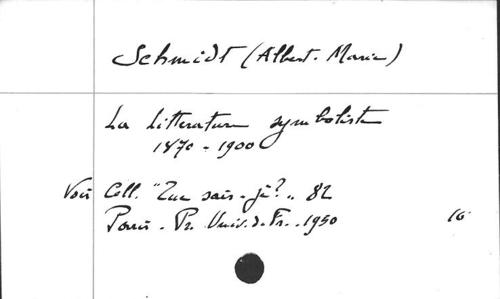 Schmidt (Albert-Marie)
La littérature symboliste
1870-1900
Voir Coll. "Que sais-je?" 82
Paris - Pr. Univ. d. Fr. - 1950 16